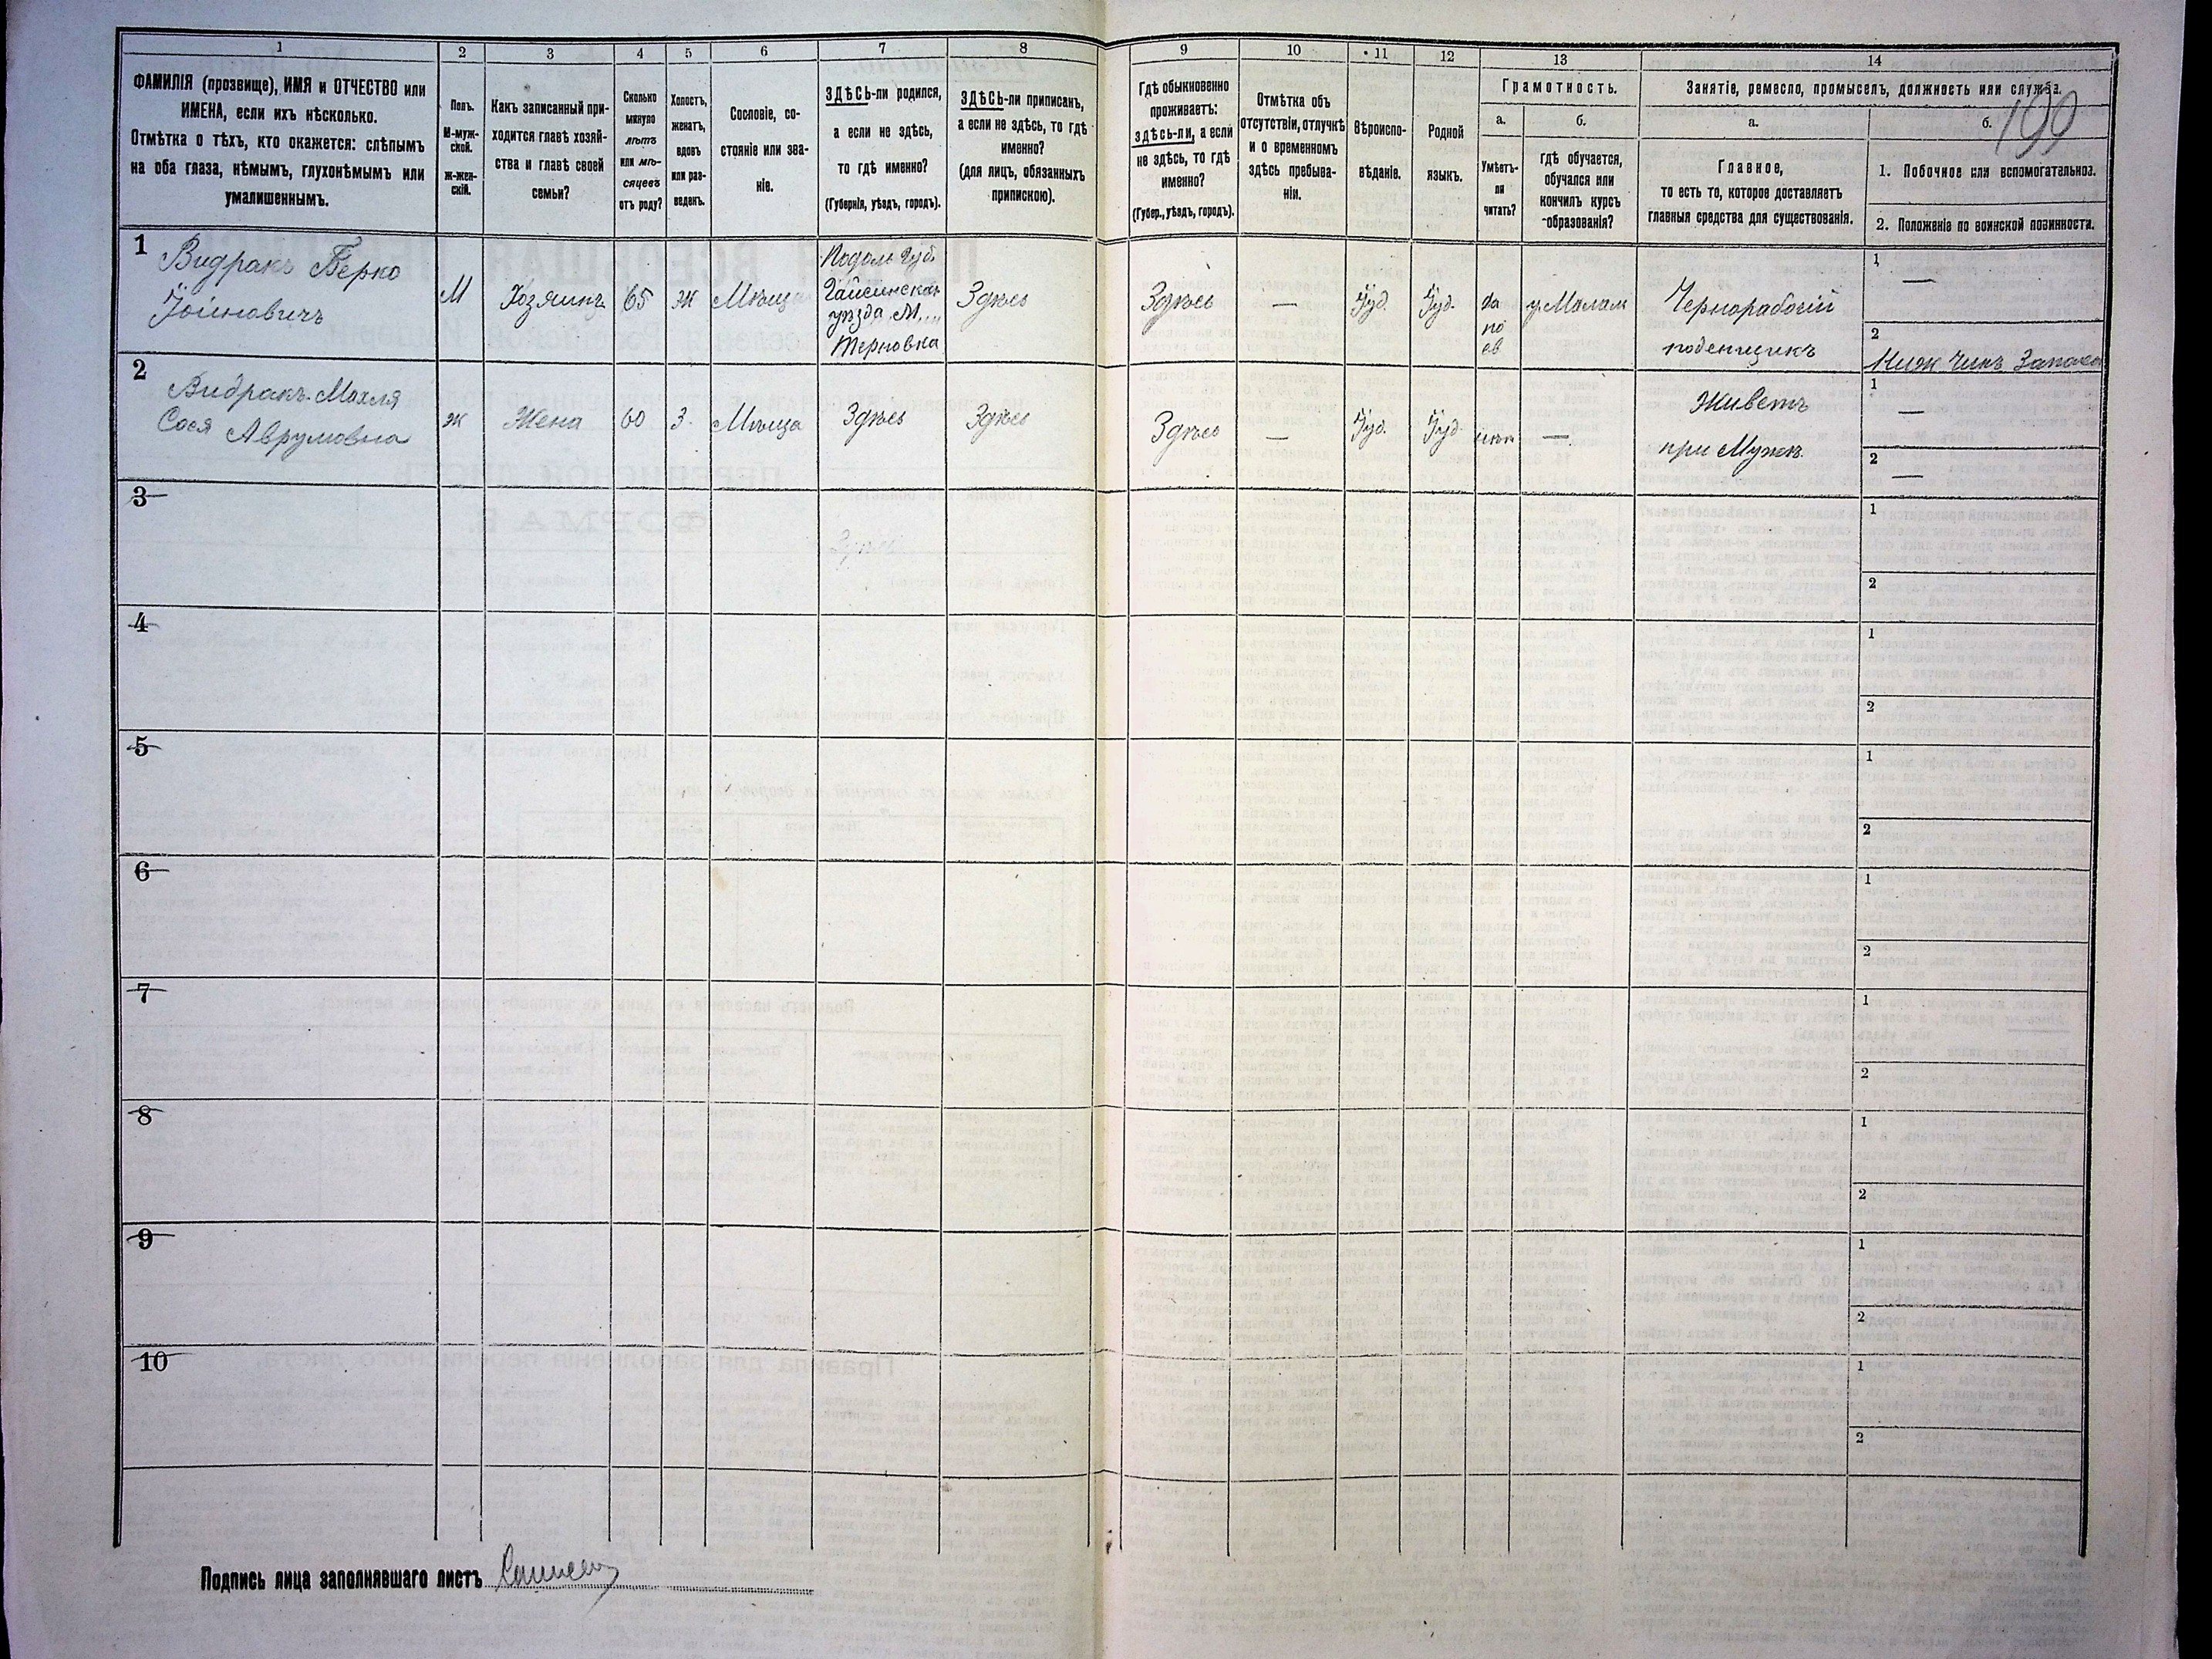 1 2 3 4 5 6 7 8 9 10 11 12 13 14
ФАМИЛІЯ (прозвище), ИМЯ и ОТЧЕСТВО или
ИМЕНА, если ихъ нѣсколько.
Отмѣтка о тѣхъ, кто окажется: слѣпымъ
на оба глаза, нѣмымъ, глухонѣмымъ или
умалишеннымъ.
Полъ.
М-муж-
ской.
ж-жен-
скій.
Какъ записанный при-
ходится главѣ хозяй-
ства и главѣ своей
семьи?
Сколько
минуло
лѣтъ
или мѣ-
сяцевъ
отъ роду?
Холостъ,
женатъ,
вдовъ
или раз-
веденъ.
Сословіе, со-
стояніе или зва-
ніе.
ЗДѢСЬ-ли родился,
а если не здѣсь,
то гдѣ именно?
(Губернія, уѣздъ, городъ).
ЗДѢСЬ-ли приписанъ,
а если не здѣсь, то гдѣ
именно?
(для лицъ, обязанныхъ
припискою).
Гдѣ обыкновенно
проживаетъ:
здѣсь-ли, а если
не здѣсь, то гдѣ
именно?
(Губер., уѣздъ, городъ).
Отмѣтка объ
отсутствіи, отлучкѣ
и о временномъ
здѣсь пребыва-
ніи.
Вѣроиспо-
вѣданіе.
Родной
языкъ.
Грамотность.
а.
б.
Умѣетъ-
ли
читать?
гдѣ обучается,
обучался или
кончилъ курсъ
образованія?
Занятіе, ремесло, промыселъ, должность или служба.
199
а.
б.
Главное,
то есть то, которое доставляетъ
главныя средства для существованія.
1. Побочное или вспомогательное.
2. Положеніе по воинской повинности.
1
Видракъ Берко
Іойновичъ
М
Хозяинъ
65
Ж
Мѣща
Подоль Губ.
Гайсинская
уѣзда М.
Терновка
Здѣсь
Здѣсь
—
Іуд.
Іуд.
да
по
ев
у Мелам
Чернорабочій
поденщикъ
1
—
2
Ниж Чинъ Запаса
2
Видракъ Махля
Сося Аврумовна
ж
Жена
60
З.
Мѣща
Здѣсь
Здѣсь
Здѣсь
—
Іуд.
Іуд.
нѣт
—
Живетъ
при Мужѣ
1
—
2
—
3
1
2
4
1
2
5
1
2
6
1
2
7
1
2
8
1
2
9
1
2
10
1
2
Подпись лица заполнявшаго листъ